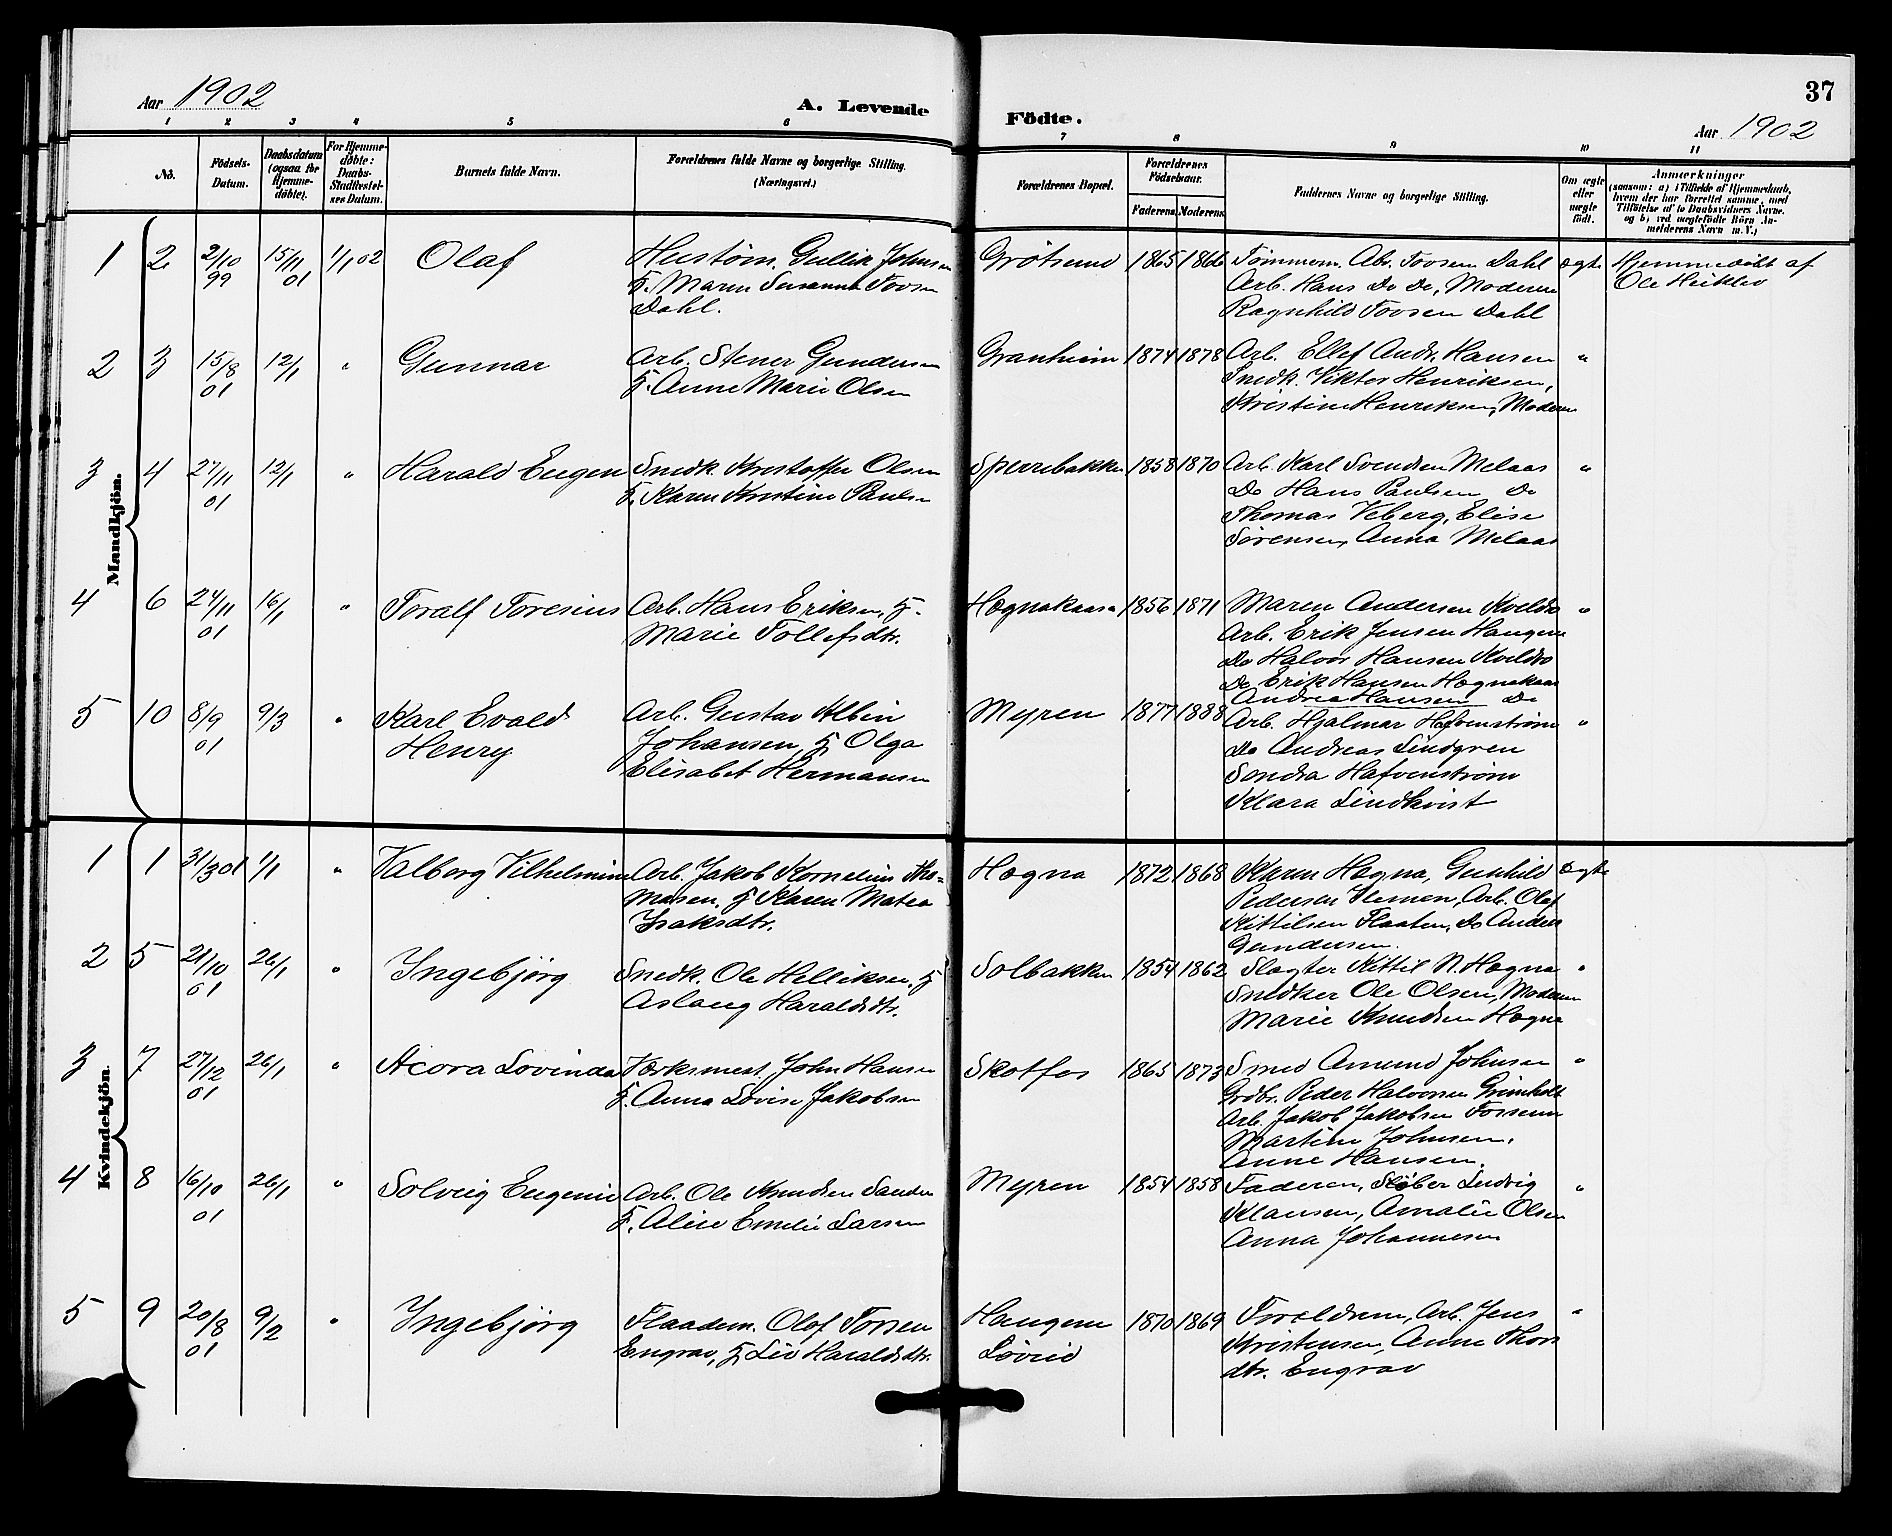 Aar 1902
A. Levende
Födte.
37
Aar 1902
1 2 3 4 5 6 7 8 9 10 11
No.
Födsels-Datum.
Daabsdatum (ogsaa for Hjemme-døbte).
For Hjemme-døbte: Daabs-Stadfæstel-ses Datum.
Barnets fulde Navn.
Forældrenes fulde Navne og borgerlige Stilling. (Næringsvei.)
Forældrenes Bopæl.
Forældrenes Födselsaar.
Faderens. Moderens.
Faddernes Navne og borgerlige Stilling.
Om ægte eller uægte født.
Anmærkninger
(saasom: a) i Tilfælde af Hjemmedaab, hvem der har forrettet samme, med Tilføielse af to Daabsvidners Navne, og b) ved uægtefødte Börn Anmelderens Navn m. V.)
Mandkjön.
1 2 2/10 99 15/11 01 1/1 02 Olaf
Hustøm. Gullik Johnsen
F. Maren Susanna Tovsen
Dahl.
Grötsund 1865 1866
Tömmerm. Abr. Tovsen Dahl
Arb. Hans Do Do, Moderen
Ragnhild Tovsen Dahl
ægte
Hjemmedöbt af
Ole Heiklev
2 3 15/8 01 12/1 " Gunnar
Arb. Stener Gundersen
F. Anne Marie Olsen
Granheim 1874 1878
Arb. Ellef Andr. Hansen
Snedk. Viktor Henriksen,
Kristine Henriksen, Moderen
"
3 4 27/11 01 12/1 " Harald Eugen
Snedk. Kristoffer Olsen
F. Karen Kristine Paulsen
Sperrebakken 1858 1870
Arb. Karl Svendsen Melaas
Do Hans Paulsen Do
Thomas Veberg, Elise
Sörensen, Anna Melaas
"
4 6 24/11 01 16/1 " Toralf Toresius
Arb. Hans Eriksen, F.
Marie Tollefsdtr.
Hægnakaasa 1856 1871
Maren Andersen Kveldro
Arb. Erik Jensen Haugen
Do Halvor Hansen Kveldro
Do Erik Hansen Hægnakaas
Andrea Hansen Do
"
5 10 8/9 01 9/3 " Karl Evald
Henry
Arb. Gustav Albin
Johansen, F. Olga
Elisabet Hermansen
Myren 1877 1888
Arb. Hjalmar Hafvenström
Do Andreas Lindgren
Sondra Hafvenström
Klara Lindkvist
"
Kvindekjön.
1 1 31/3 01 1/1 " Valborg Vilhelmine
Arb. Jakob Kornelius Tho-
masen, F. Karen Matea
Isaksdtr.
Hægna 1872 1868
Karen Hægna, Gunhild
Pedersen Stemen, Arb. Olaf
Kittilsen Flaaten, Do Anders
Gundersen.
ægte
2 5 21/10 01 26/1 " Ingebjörg
Snedk. Ole Helliksen, F
Aslaug Haraldsdtr.
Solbakken 1854 1862
Slagter Kittil N. Hægna
Snedker Ole Olsen, Moderen
Marie Knudsen Hægna
"
3 7 27/12 01 26/1 " Acora Lovinda
Værksmest. John Hansen
F. Anna Lovise Jakobsen
Skotfos 1865 1873
Smed Amund Johnsen
Grdbr. Peder Halvorsen Grimholt
Arb. Jakob Jakobsen Fossum
Martine Johnsen,
Anne Hansen.
"
4 8 16/10 01 26/1 " Solveig Eugenie
Arb. Ole Knudsen Sanden
F. Alise Emelie Larsen
Myren 1854 1858
Faderen, Støber Ludvig
Klausen, Amalie Olsen
Anna Johannesen
"
5 9 20/8 01 9/2 " Ingebjörg
Flaadem. Olaf Torsen
Engrav, F. Liv Haraldsdtr.
Haugene
Löveid
1870 1869
Forældrene, Arb. Jens
Kristensen, Anne Thors
dtr. Engrav
"